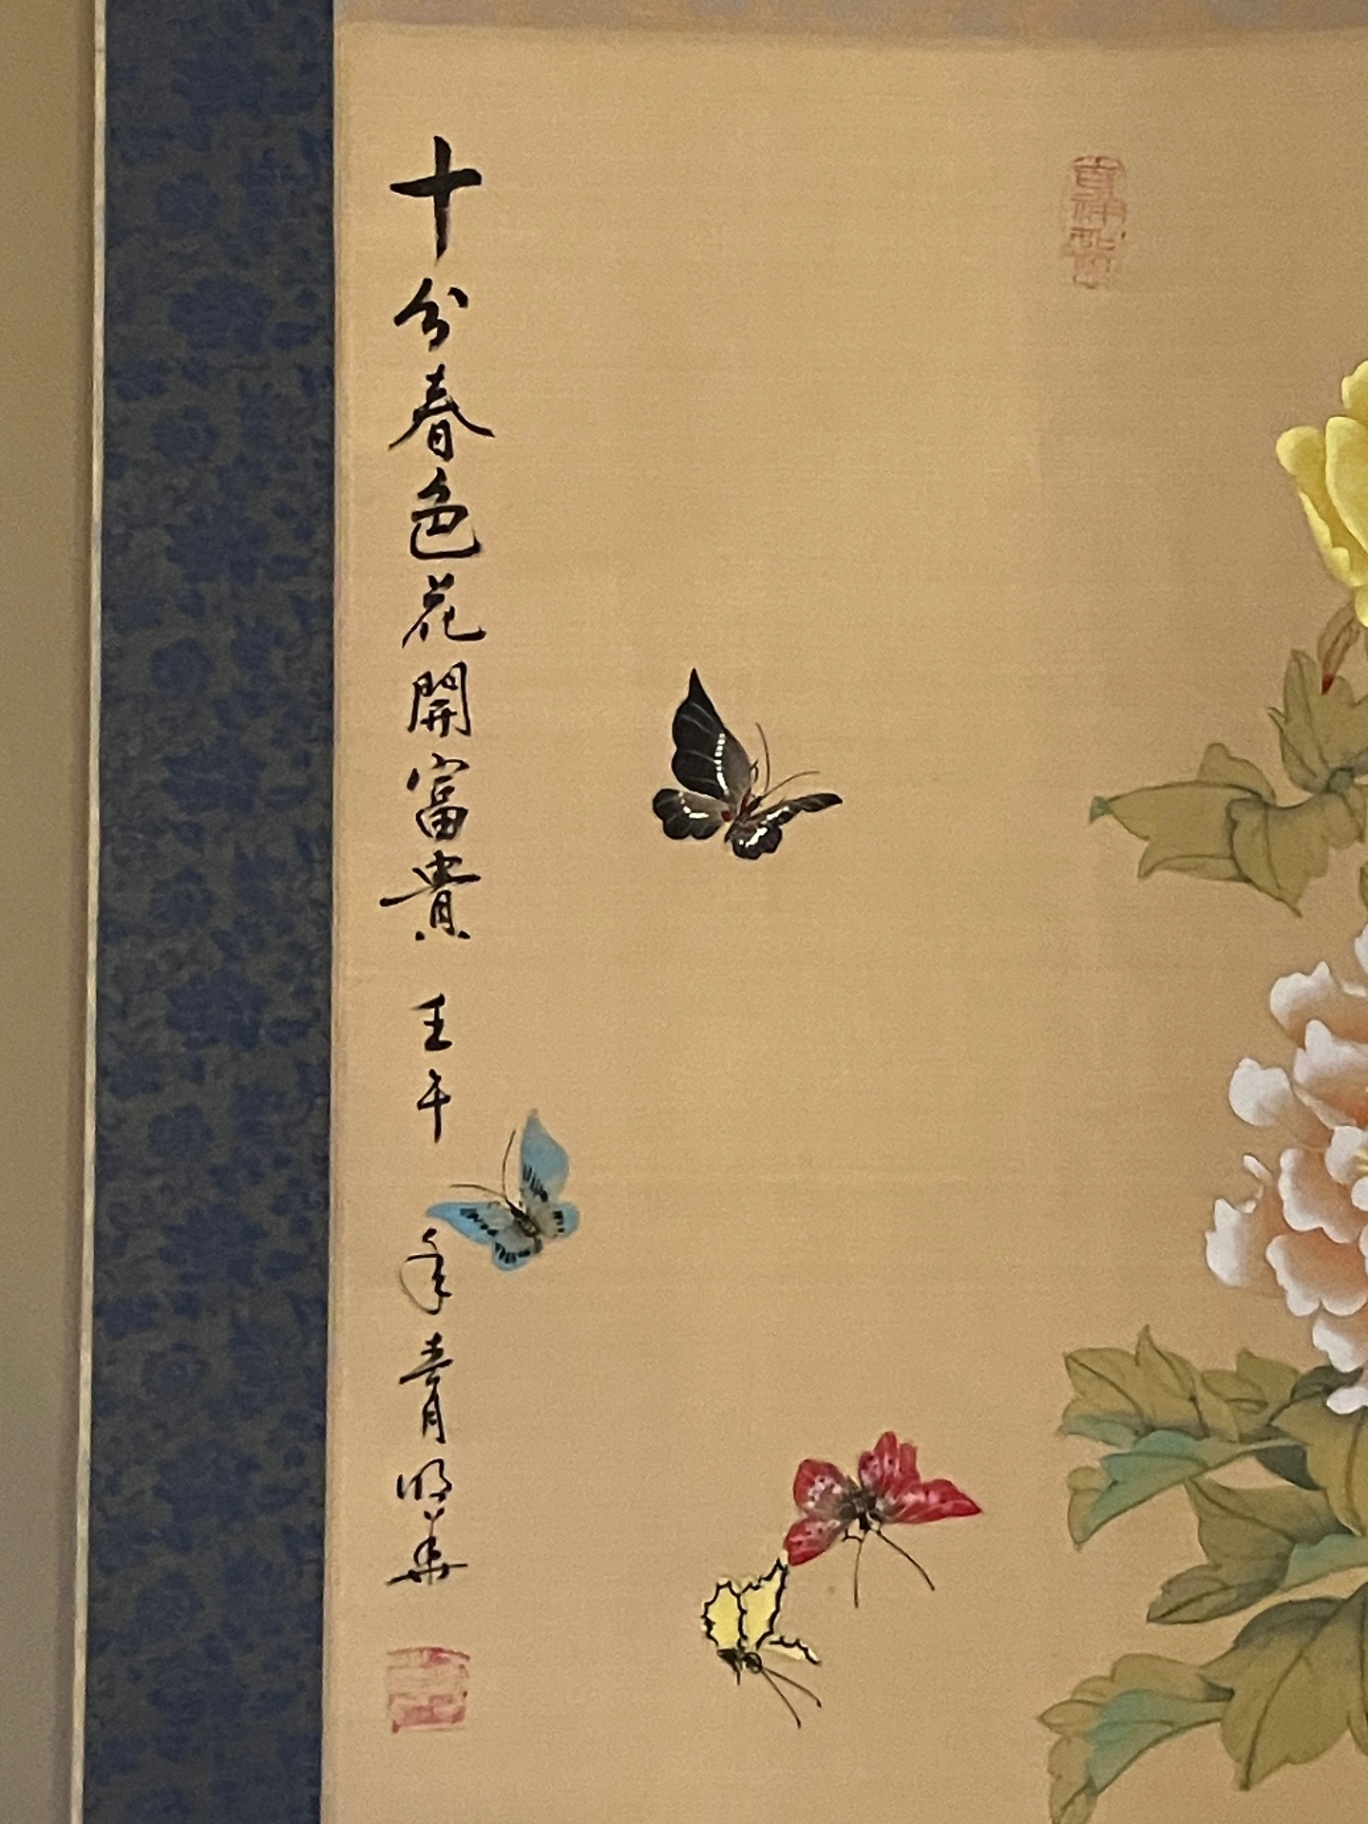 十分春色花開富貴 壬午年青明華